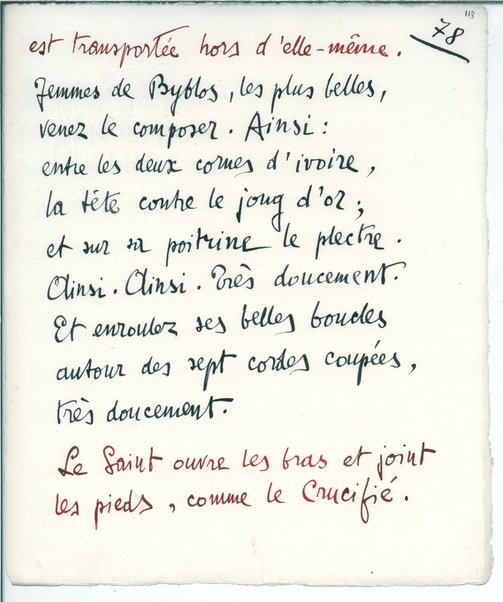 113
78
est transportée hors d'elle-même.
Femmes de Byblos, les plus belles,
venez le composer. Ainsi :
entre les deux cornes d'ivoire,
la tête contre le joug d'or ;
et sur sa poitrine le plectre.
Ainsi. Ainsi. Très doucement.
Et enroulez ses belles boucles
autour des sept cordes coupées,
très doucement.
Le Saint ouvre les bras et joint
les pieds, comme le Crucifié.